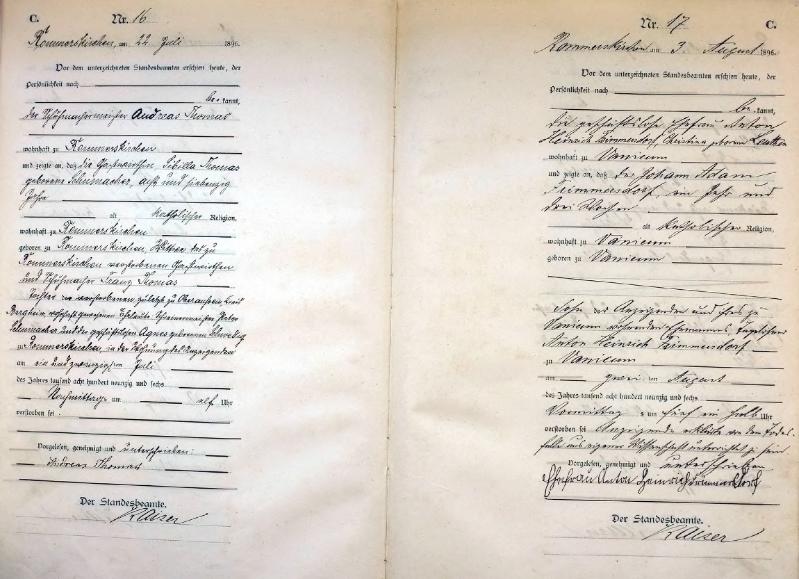 C. Nr. 16
Rommerskirchen, am 22 Juli 1896.
Vor dem unterzeichneten Standesbeamten erschien heute, der
Persönlichkeit nach
be kannt,
der Schuhmachermeister Andreas Thomas
wohnhaft zu Rommerskirchen
und zeigte an, daß die Gastwirthin Sibilla Thomas
geborene Schumacher, acht und siebenzig
Jahre
alt katholischer Religion,
wohnhaft zu Rommerskirchen
geboren zu Rommerskirchen, Wittwe des zu
Rommerskirchen verstorbenen Gastwirthen
und Schuhmacher Franz Thomas
Tochter der verstorbenen zuletzt zu Oberaußem, Kreis
Bergheim, wohnhaft gewesenen Eheleute Peter
Schumacher und der geschäftslosen Agnes geborenen
zu Rommerskirchen, in der Wohnung des Anzeigenden
am ein und zwanzigsten Juli
des Jahres tausend acht hundert neunzig und sechs
Nachmittags um elf Uhr
verstorben sei.
Vorgelesen, genehmigt und unterschrieben:
Andreas Thomas
Der Standesbeamte.
Kaiser
Nr. 17 C.
Rommerskirchen am 3 August 1896.
Vor dem unterzeichneten Standesbeamten erschien heute, der
Persönlichkeit nach
be kannt,
die geschäftslose Ehefrau Anton
Heinrich Trimmersdorf, Christina geborene
wohnhaft zu Vanicum
und zeigte an, daß der Johann Adam
Trimmersdorf, ein Jahr und
drei Wochen
alt katholischer Religion,
wohnhaft zu Vanicum
geboren zu Vanicum
Sohn der Anzeigenden und ihres zu
Vanicum wohnenden Ehemannes, Tagelöhner
Anton Heinrich Trimmersdorf
zu Vanicum
am zwei ten August
des Jahres tausend acht hundert neunzig und sechs
Vormittag s um fünf ein halb Uhr
verstorben sei. Anzeigende erklärte von dem Todes-
falle aus eigener Wissenschaft unterrichtet zu sein
Vorgelesen, genehmigt und unterschrieben
Ehefrau Anton Heinrich Trimmersdorf
Der Standesbeamte.
Kaiser